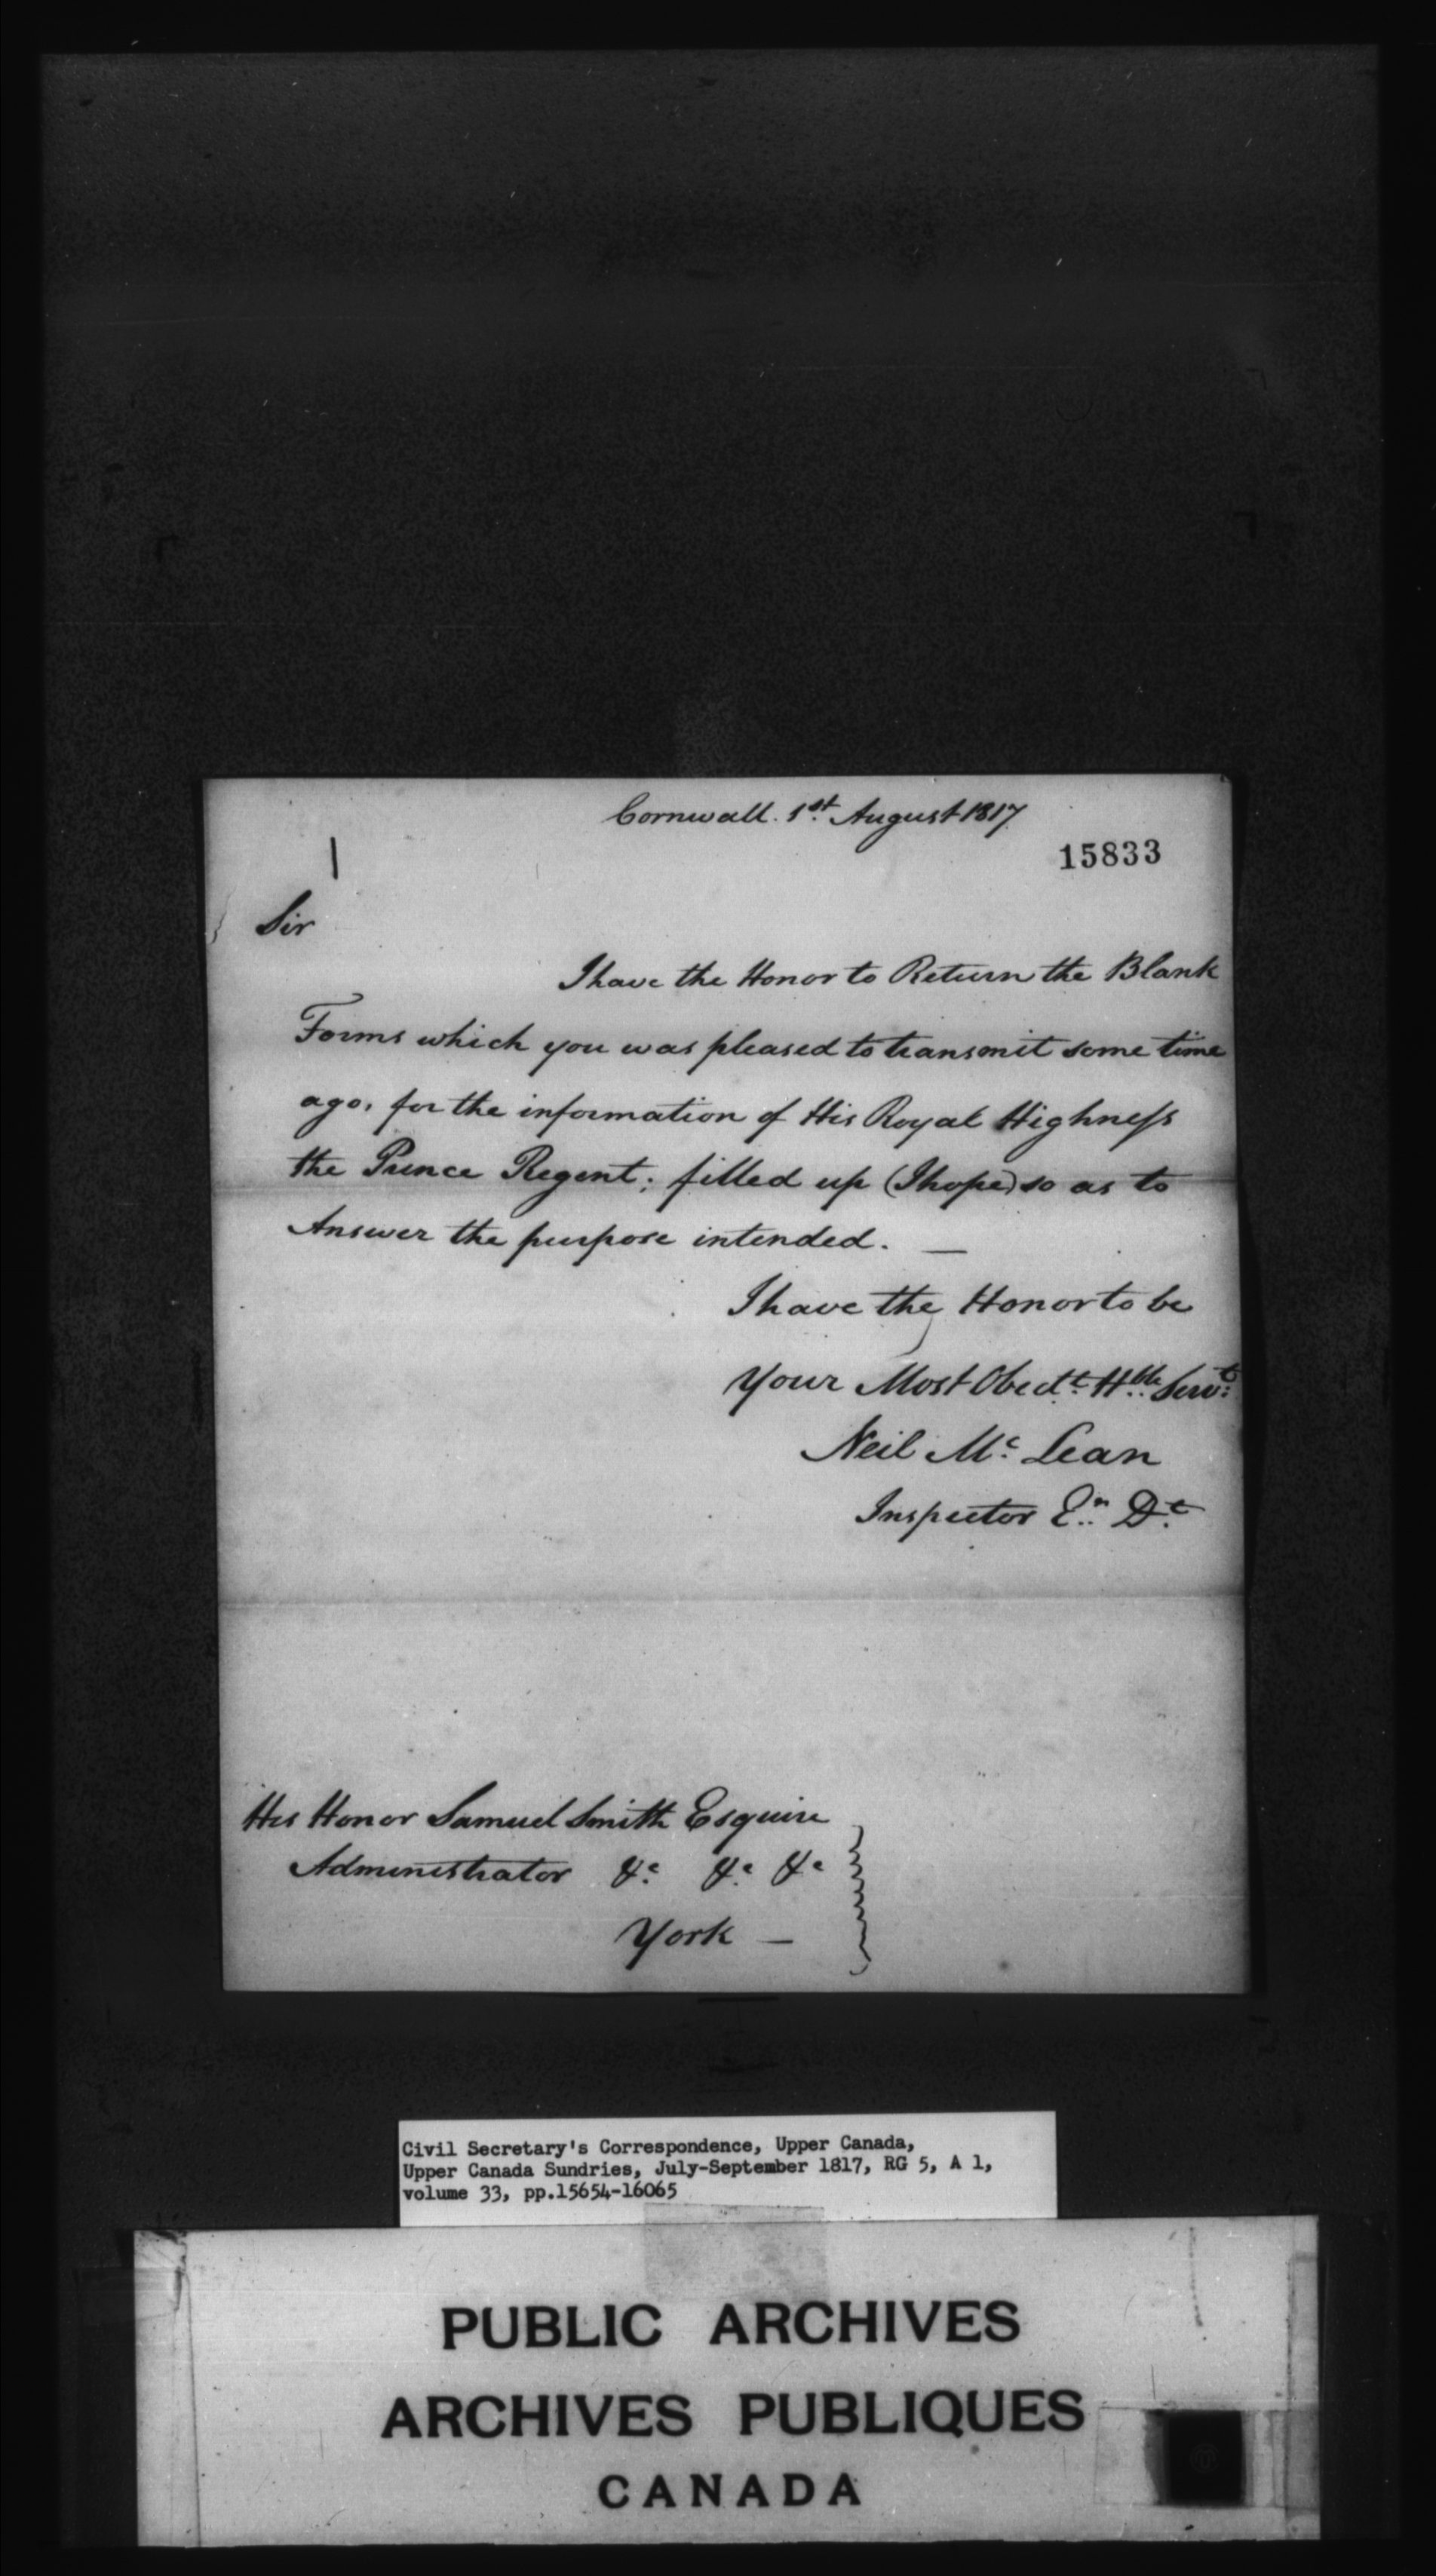 Cornwall. 1st. August 1817.
15833
Sir
I have the Honor to Return the Blank
Forms which you was pleased to transmit some time
ago, for the information of His Royal Highness
the Prince Regent; filled up (I hope) so as to
Answer the purpose intended. —
I have the Honor to be
Your Most Obedt. Hble Servt.
Neil Mc. Lean
Inspector En. Dt.
His Honor Samuel Smith Esquire
Administrator &c. &c. &c
York —
Civil Secretary's Correspondence, Upper Canada,
Upper Canada Sundries, July-September 1817, RG 5, A 1,
volume 33, pp.15654-16065
PUBLIC ARCHIVES
ARCHIVES PUBLIQUES
CANADA